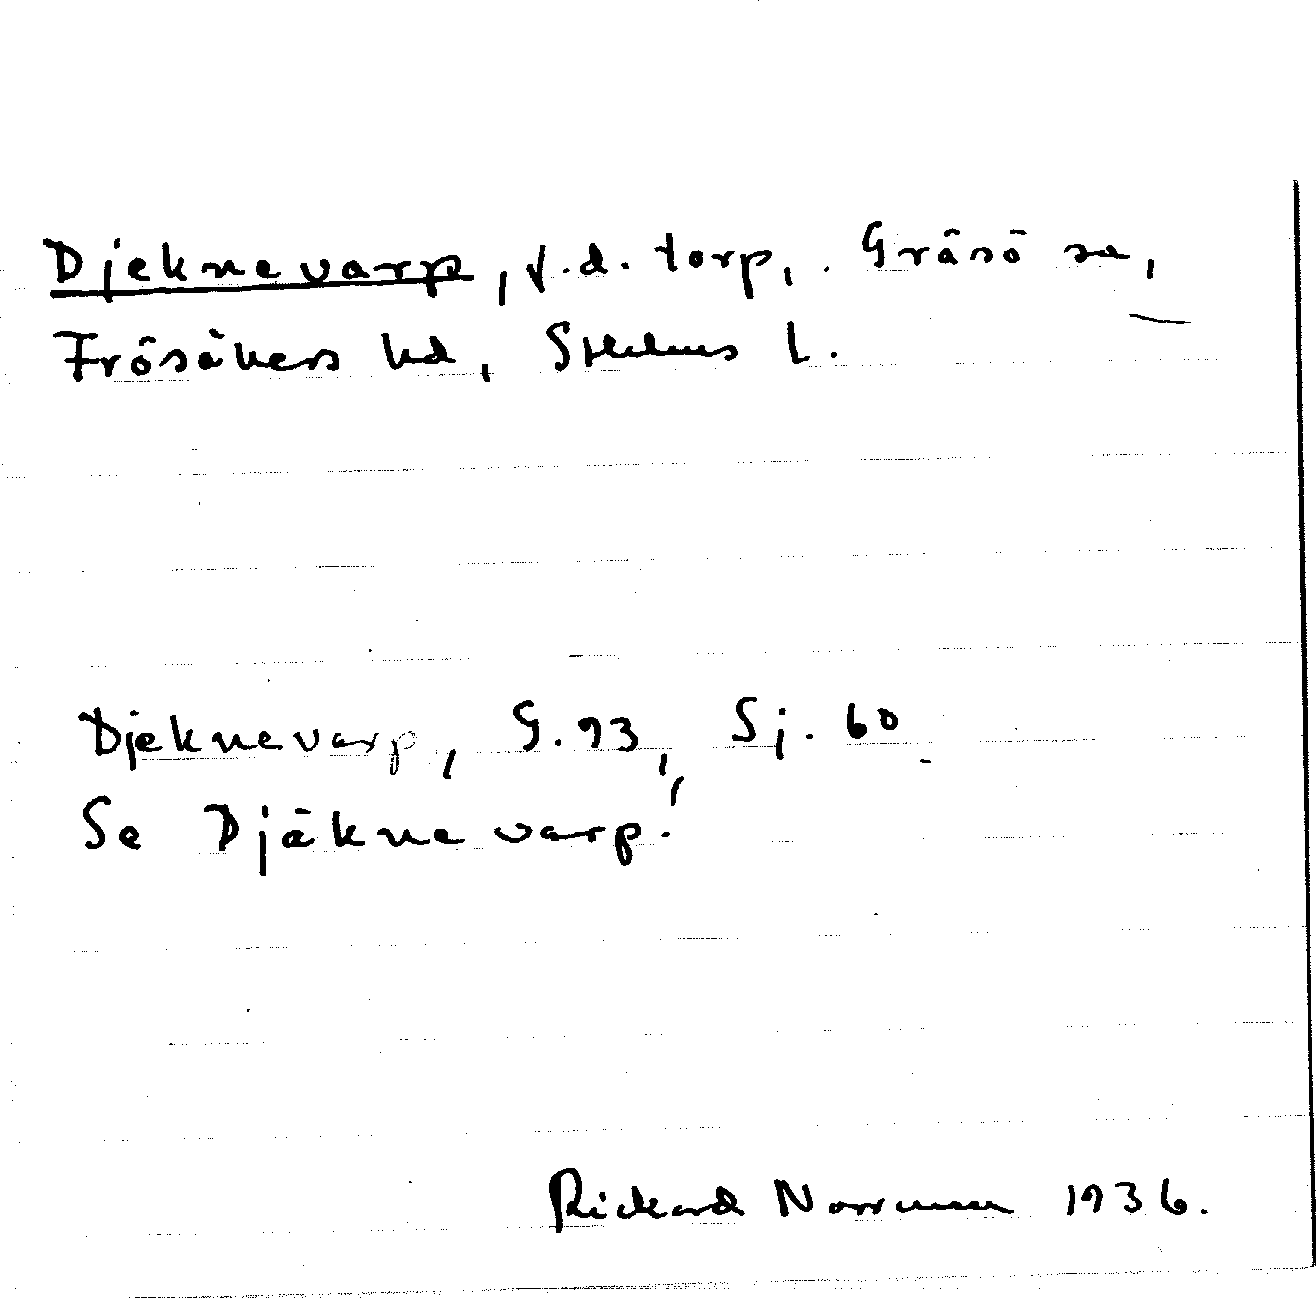 Djeknevarp, f.d. torp, Gräsö sn,
Frösåkers hd, Sthlms l.
Djeknevarp, G. 93, Sj. 60
Se Djäknevarp!
Rickard Norrman 1936.